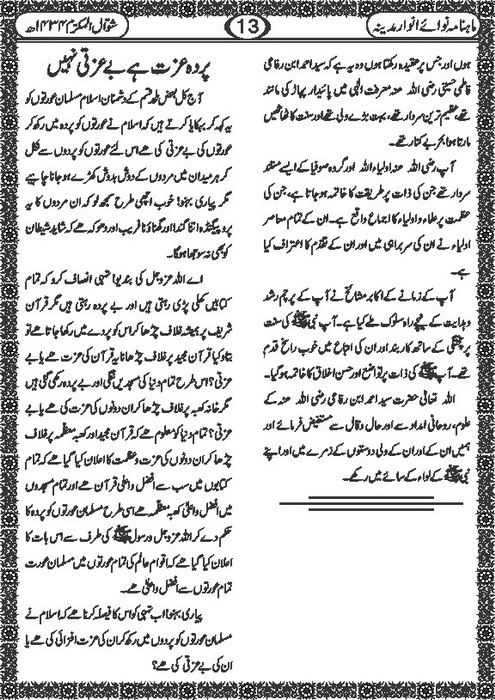 ماہنامہ نوائے انوار مدینہ
13
شوال المکرّم ۱۴۳۴ھ
ہوں اور جس پر عقیدہ رکھتا ہوں وہ یہ ہے کہ سید احمد ابن رفاعی
فاطمی حسینی رضی اللہ عنہ معرفت الٰہی میں پائیدار پہاڑ کی مانند
تھے، عظیم ترین سردار تھے، بہت بڑے ولی تھے اور سنت کا ٹھاٹھیں
مارتا ہوا بحر بے کنار تھے۔
آپ رضی اللہ عنہ اولیاء اللہ اور گروہ صوفیا کے ایسے مستند
سردار تھے جن کی ذات پر طریقت کا خاتمہ ہو جاتا ہے، جن کی
عظمت پر علماء و اولیاء کا اجماع واقع ہے۔ ان کے تمام معاصر
اولیاء نے ان کی سربراہی میں اور ان کے تقدم کا اعتراف کیا
ہے۔
آپ کے زمانے کے اکابر مشائخ نے آپ کے پرچم رشد
و ہدایت کے نیچے راہ سلوک طے کیا ہے۔ آپ نبی ﷺ کی سنت
پر پختگی کے ساتھ کار بند اور ان کی اتباع میں خوب راسخ قدم
تھے۔ آپ ﷺ کی ذات پر تواضع اور حسن اخلاق کا خاتمہ ہو گیا۔
اللہ تعالیٰ حضرت سید احمد ابن رفاعی رضی اللہ عنہ کے
علوم، روحانی امداد سے اور حال و قال سے مستفیض فرمائے اور
ہمیں ان کے اور ان کے ولی دوستوں کے زمرے میں اور اپنے
نبی ﷺ کے لواء کے سائے میں رکھے۔
پردہ عزت ہے بے عزتی نہیں
آج کل بعض ملحد قسم کے دشمنان اسلام مسلمان عورتوں کو
یہ کہہ کر بہکایا کرتے ہیں کہ اسلام نے عورتوں کو پردہ میں رکھ کر
عورتوں کی بے عزتی کی ھے اس لئے عورتوں کو پردوں سے نکل
کر ھر میدان میں مردوں کے دوش بدوش کھڑے ہو جانا چاہیے
مگر پیاری بہنو! خوب اچھی طرح سمجھ لو کہ ان مردوں کا یہ
پروپیگنڈہ اتنا گندا اور گھناؤنا فریب اور دھوکہ ھے کہ شاید شیطان
کو بھی نہ سوجھا ہوگا۔
اے اللہ عزوجل کی بندیو! تمہی انصاف کرو کہ تمام
کتابیں کھلی پڑی رہتی ہیں اور بے پردہ رہتی ہیں مگر قرآن
شریف پر ہمیشہ غلاف چڑھا کر اس کو پردے میں رکھا جاتا ھے تو
بتاؤ کیا قرآن مجید پر غلاف چڑھانا یہ قرآن کی عزت ھے یا بے
عزتی؟ اسی طرح تمام دنیا کی مسجدیں ننگی اور بے پردہ رکھی گئی ہیں
مگر خانہ کعبہ پر غلاف چڑھا کر ان دونوں کی عزت کی ھے یا بے
عزتی؟ تمام دنیا کو معلوم ھے کہ قرآن مجید اور کعبہ معظمہ پر غلاف
چڑھا کر ان دونوں کی عزت و عظمت کا اعلان کیا گیا ھے کہ تمام
کتابوں میں سب سے افضل و اعلیٰ قرآن ھے اور تمام مسجدوں
میں افضل و اعلیٰ کعبہ معظمہ ھے اسی طرح مسلمان عورتوں کو پردہ کا
حکم دے کر اللہ عزوجل و رسول ﷺ کی طرف سے اس بات کا
اعلان کیا گیا ھے کہ اقوام عالم کی تمام عورتوں میں مسلمان عورت
تمام عورتوں سے افضل و اعلیٰ ھے۔
پیاری بہنو! اب تمہی کو اس کا فیصلہ کرنا ھے کہ اسلام نے
مسلمان عورتوں کو پردوں میں رکھ کر ان کی عزت افزائی کی ھے یا
ان کی بے عزتی کی ھے؟